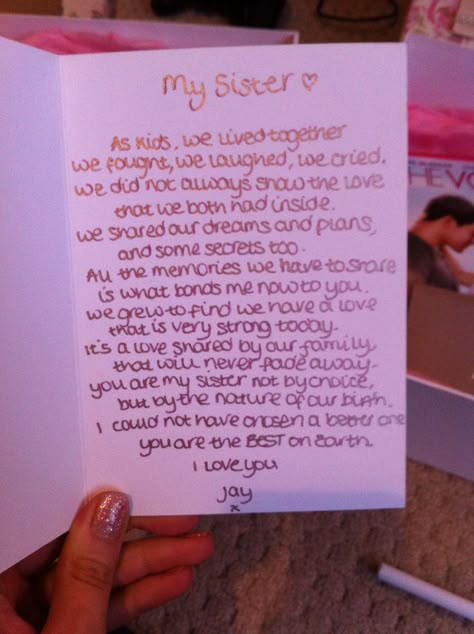 My Sister ♡
As kids, we lived together
we fought, we laughed, we cried.
we did not always show the love
that we both had inside.
we shared our dreams and plans,
and some secrets too.
All the memories we have to share
is what bonds me now to you.
we grew to find we have a love
that is very strong today.
it's a love shared by our family
that will never fade away-
you are my sister not by choice,
but by the nature of our birth.
I could not have chosen a better one
you are the BEST on Earth.
I love you
Jay
x